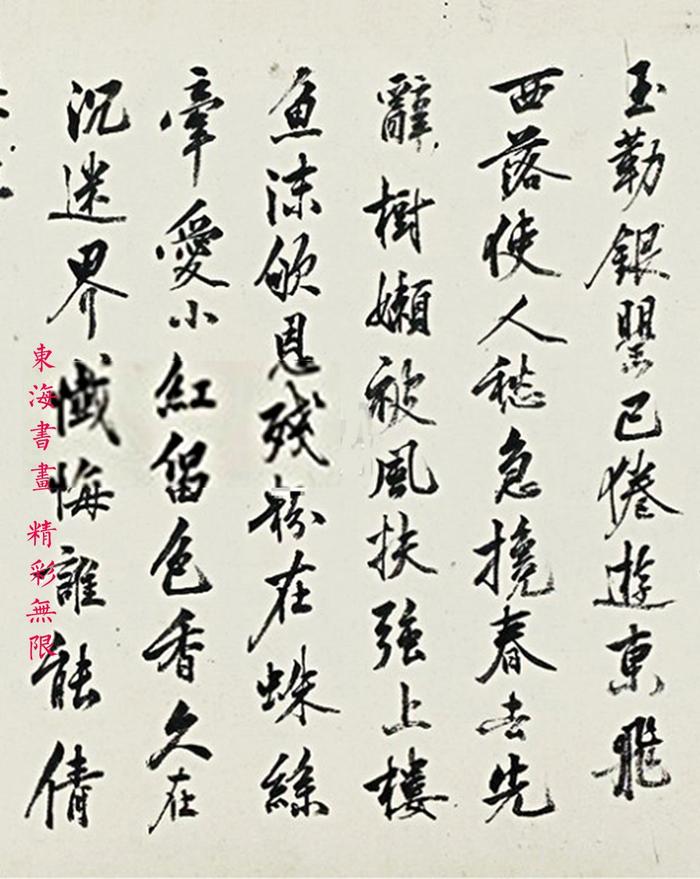 玉勒銀罌已倦遊東飛
西落使人愁急攙春去先
辭樹嬾被風扶強上樓
魚沫恩残粉在蛛絲
牽愛小紅留色香久在
沉迷界懺悔誰能倩
東海書畫 精彩無限